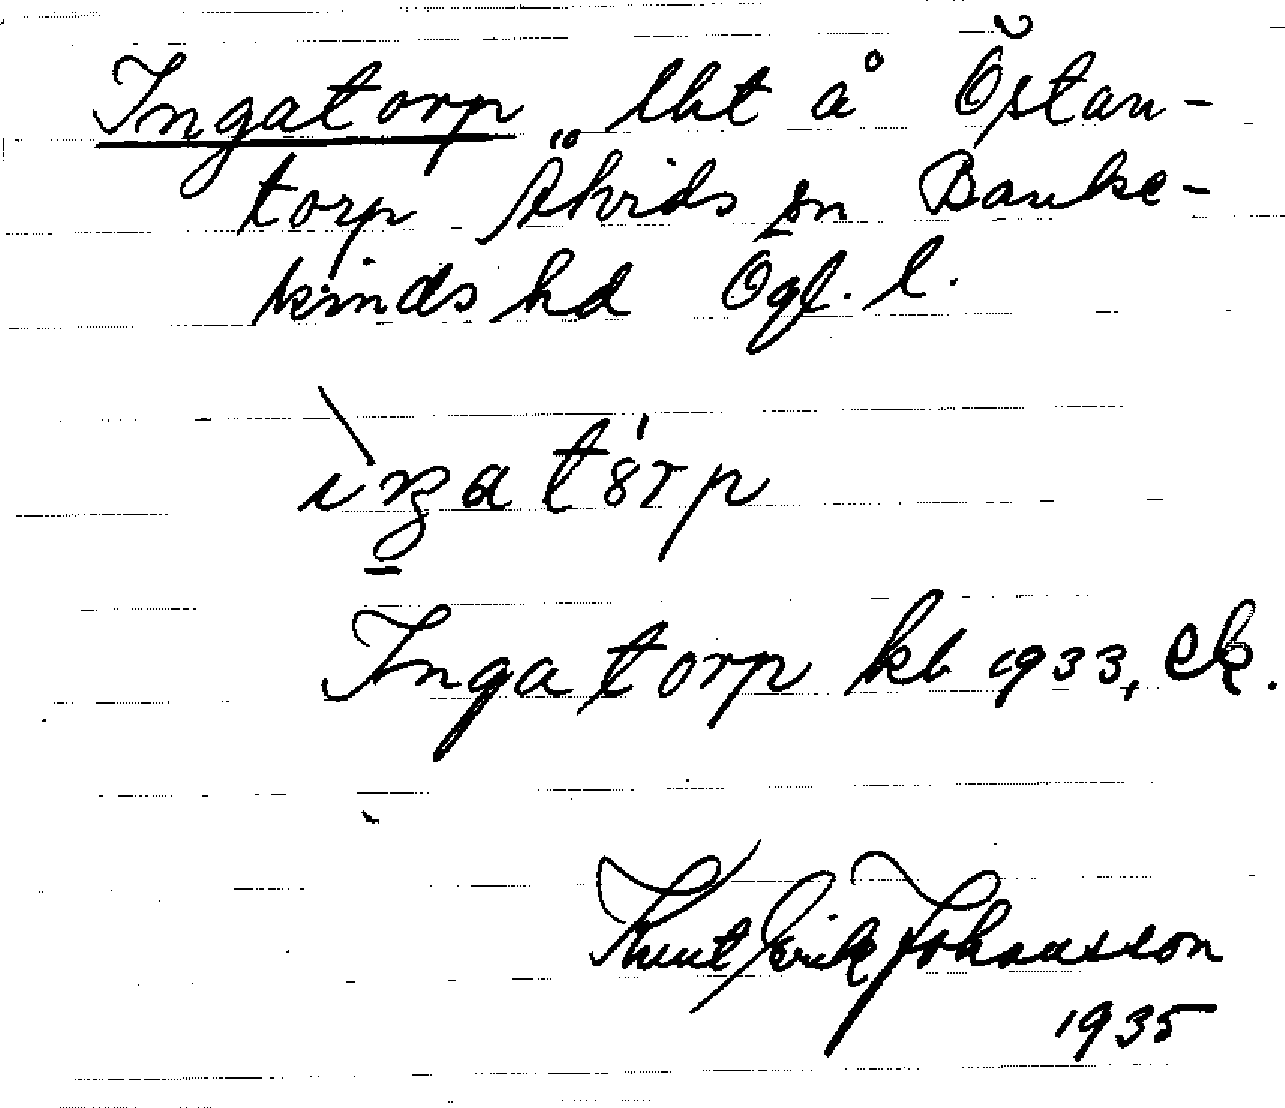 Ingatorp lht å Östan-
torp Åkvids sn Banke-
kinds hd Ögl. l.
ìŋató̤rp
Ingatorp kb 1933, ek.
Knut Erik Johansson
1935